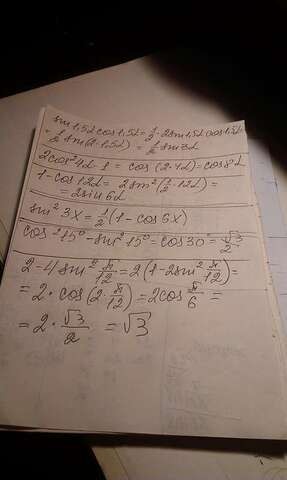 sin 1,5α cos 1,5α = 1/2 · 2sin 1,5α cos 1,5α =
= 1/2 sin(2·1,5α) = 1/2 sin 3α
2cos² 4α - 1 = cos (2·4α) = cos 8α
1 - cos 12α = 2sin² (1/2 · 12α) =
= 2sin 6α
sin² 3x = 1/2 (1 - cos 6x)
cos² 15° - sin² 15° = cos 30° = √3/2
2 - 4 sin² π/12 = 2(1 - 2sin² π/12) =
= 2 · cos (2 · π/12) = 2cos π/6 =
= 2 · √3/2 = √3